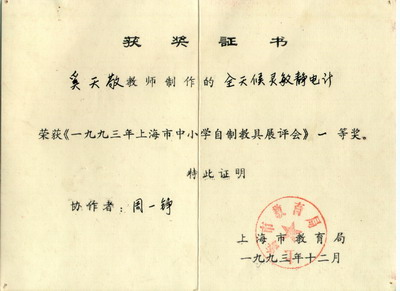 获奖証书
奚天敬教师制作的全天候灵敏静电计
荣获《一九九三年上海市中小学自制教具展评会》一等奖。
特此证明
协作者：周一铮
上海市教育局
一九九三年十二月
上海市教育局